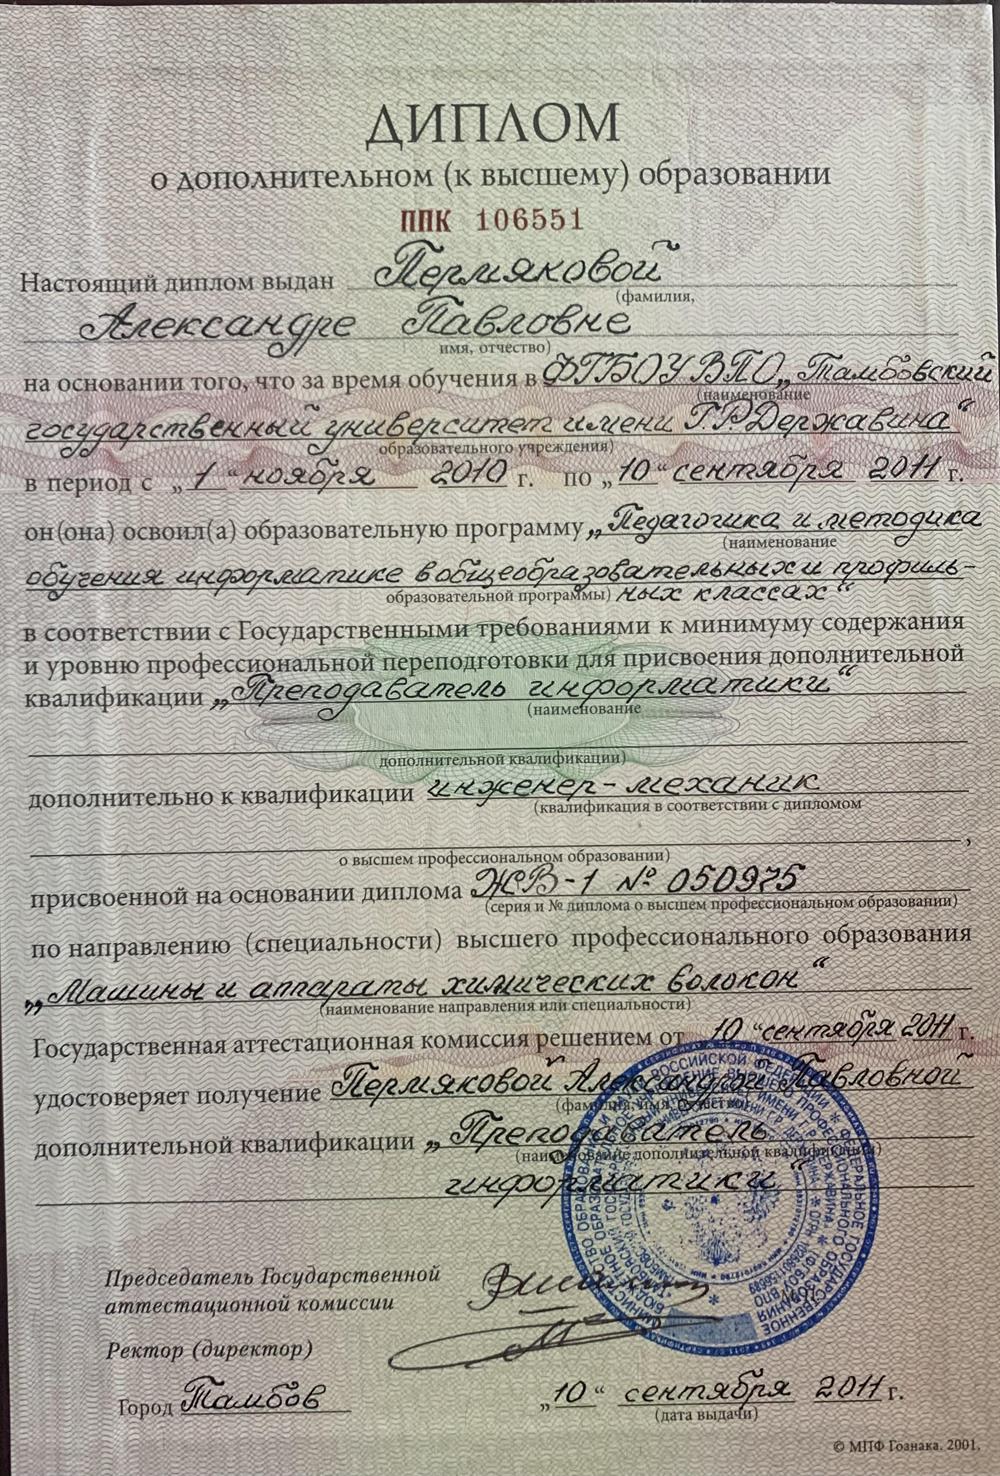 ДИПЛОМ
о дополнительном (к высшему) образовании
ППК 106551
Настоящий диплом выдан Пермяковой
(фамилия,
Александре Павловне
имя, отчество)
на основании того, что за время обучения в ФГБОУ ВПО „Тамбовский
(наименование
государственный университет имени Г.Р. Державина“
образовательного учреждения)
в период с „1“ ноября 2010 г. по „10“ сентября 2011 г.
он(она) освоил(а) образовательную программу „Педагогика и методика
(наименование
обучения информатике в общеобразовательных и профиль-
образовательной программы) ных классах“
в соответствии с Государственными требованиями к минимуму содержания
и уровню профессиональной переподготовки для присвоения дополнительной
квалификации „Преподаватель информатики“
(наименование
дополнительной квалификации)
дополнительно к квалификации инженер-механик
(квалификация в соответствии с дипломом
,
о высшем профессиональном образовании)
присвоенной на основании диплома ЖВ-1 № 050975
(серия и № диплома о высшем профессиональном образовании)
по направлению (специальности) высшего профессионального образования
„Машины и аппараты химических волокон“
(наименование направления или специальности)
Государственная аттестационная комиссия решением от 10 “сентября 2011 г.
удостоверяет получение Пермяковой Александрой Павловной
(фамилия, имя, отчество)
дополнительной квалификации „Преподаватель
(наименование дополнительной квалификации)
информатики“
Председатель Государственной
аттестационной комиссии
Ректор (директор)
Город Тамбов „10“ сентября 2011 г.
(дата выдачи)
© МПФ Гознака. 2001.